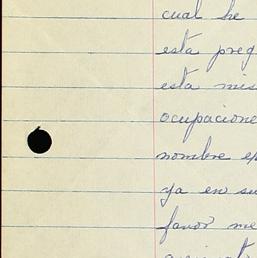 cual he
esta preg
esta mis
ocupacione
nombre
ya en su
favor me